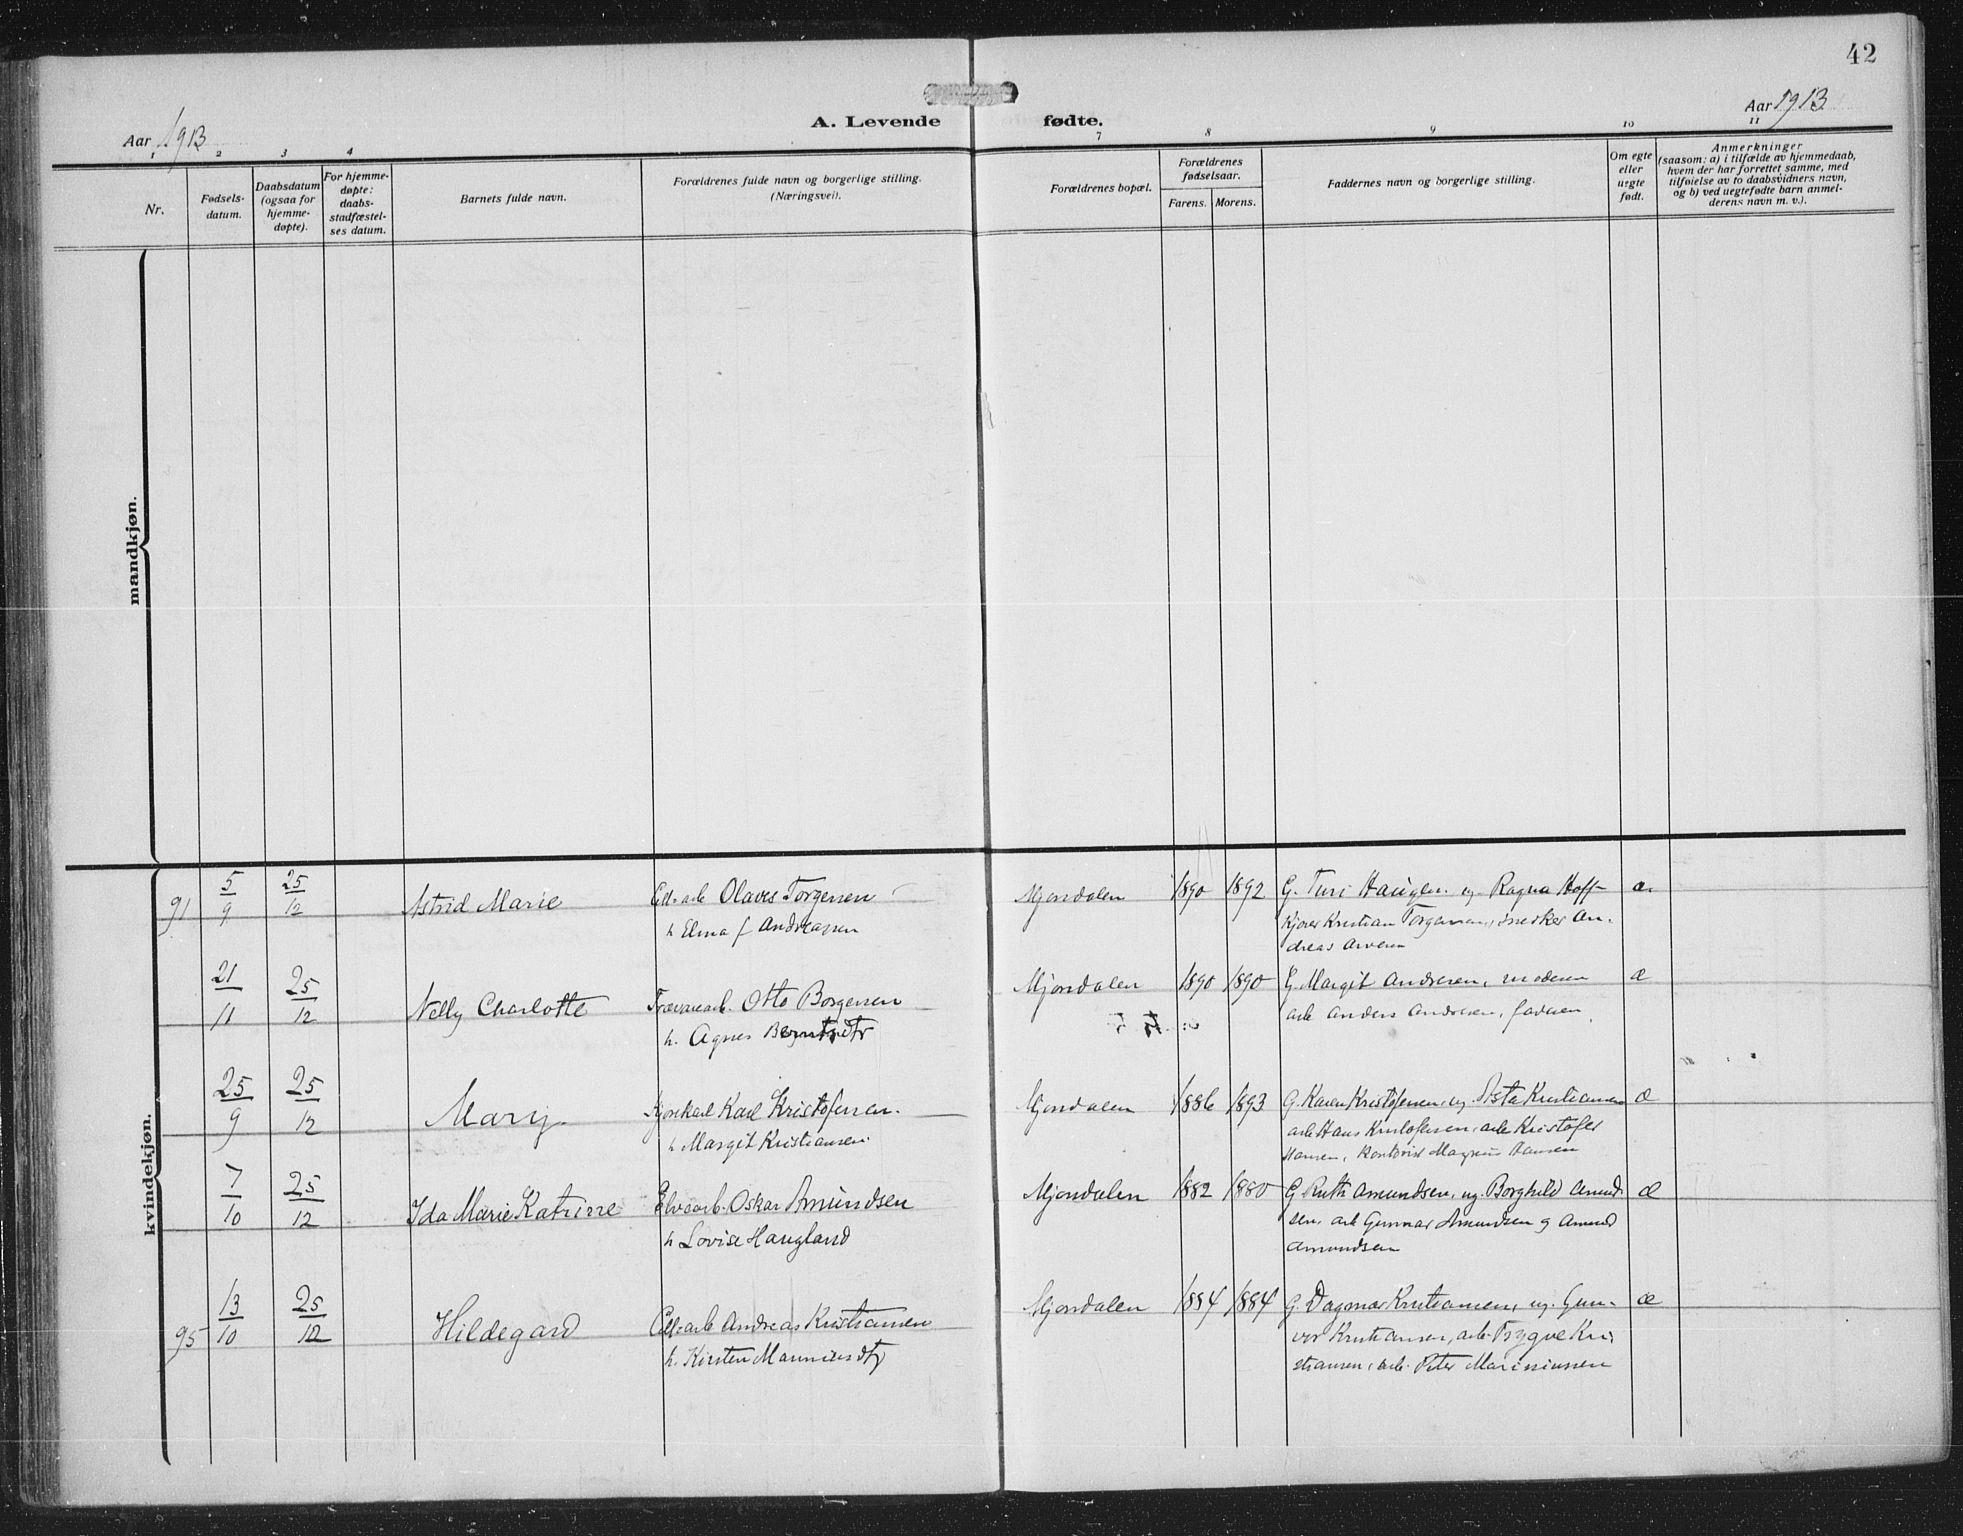 42
Aar 1913
A. Levende fødte.
Aar 1913
1 2 3 4 7 8 9 10 11
Nr.
Fødsels-
datum.
Daabsdatum
(ogsaa for
hjemme-
døpte).
For hjemme-
døpte:
daabs-
stadfæstel-
ses datum.
Barnets fulde navn.
Forældrenes fulde navn og borgerlige stilling.
(Næringsvei).
Forældrenes bopæl.
Forældrenes
fødselsaar.
Farens. Morens.
Faddernes navn og borgerlige stilling.
Om egte
eller
uegte
født.
Anmerkninger
(saasom: a) i tilfælde av hjemmedaab,
hvem der har forrettet samme, med
tilføielse av to daabsvidners navn,
og b) ved uegtefødte barn anmel-
derens navn m. v.).
mandkjøn.
kvindekjøn.
91 5/9 25/12 Astrid Marie Cell-arb Olaves Torgersen Mjøndalen 1890 1892 G. Turi Haugen, ug. Ragna Hoff-
h Elma f Andreassen Kjører Kristian Torgersen, snekker An-
dreas
æ
21/11 25/12 Nelly Charlotte Trævarearb. Otto Borgersen Mjøndalen 1890 1890 G. Margit Andresen, moderen æ
h. Agnes Berntsdtr arb Anders Andresen, faderen
25/9 25/12 Mary Kjørekarl Karl Kristofersen Mjøndalen 1886 1893 G. Karen Kristofersen, ug. Asta Kristiansen æ
h Margit Kristiansen arb Hans Kristofersen, arb Kristofer
Hansen, kontorist Magnus Hansen
7/10 25/12 Ida Marie Katrine Elvearb. Oskar Amundsen Mjøndalen 1882 1880 G. Ruth Amundsen, ug. Borghild Amund- æ
h Lovise Haugland sen, arb Gunnar Amundsen og Amund
Amundsen
95 13/10 25/12 Hildegard Cell-arb Andreas Kristiansen Mjøndalen 1884 1884 G. Dagmar Kristiansen, ug. Gun- æ
h. Kirsten vor Kristiansen, arb. Trygve Kri-
stiansen, arb. Peter Marinussen